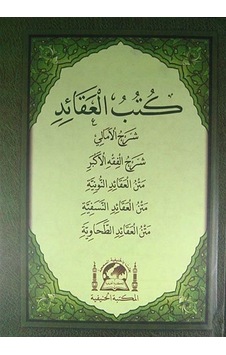 كُتُبُ الْعَقَائِدِ
شَرْحُ الْأَمَالِي
شَرْحُ الْفِقْهِ الْأَكْبَرِ
مَتْنُ الْعَقَائِدِ النُّونِيَّةِ
مَتْنُ الْعَقَائِدِ النَّسَفِيَّةِ
مَتْنُ الْعَقَائِدِ الطَّحَاوِيَّةِ
المكتبة الحنيفية